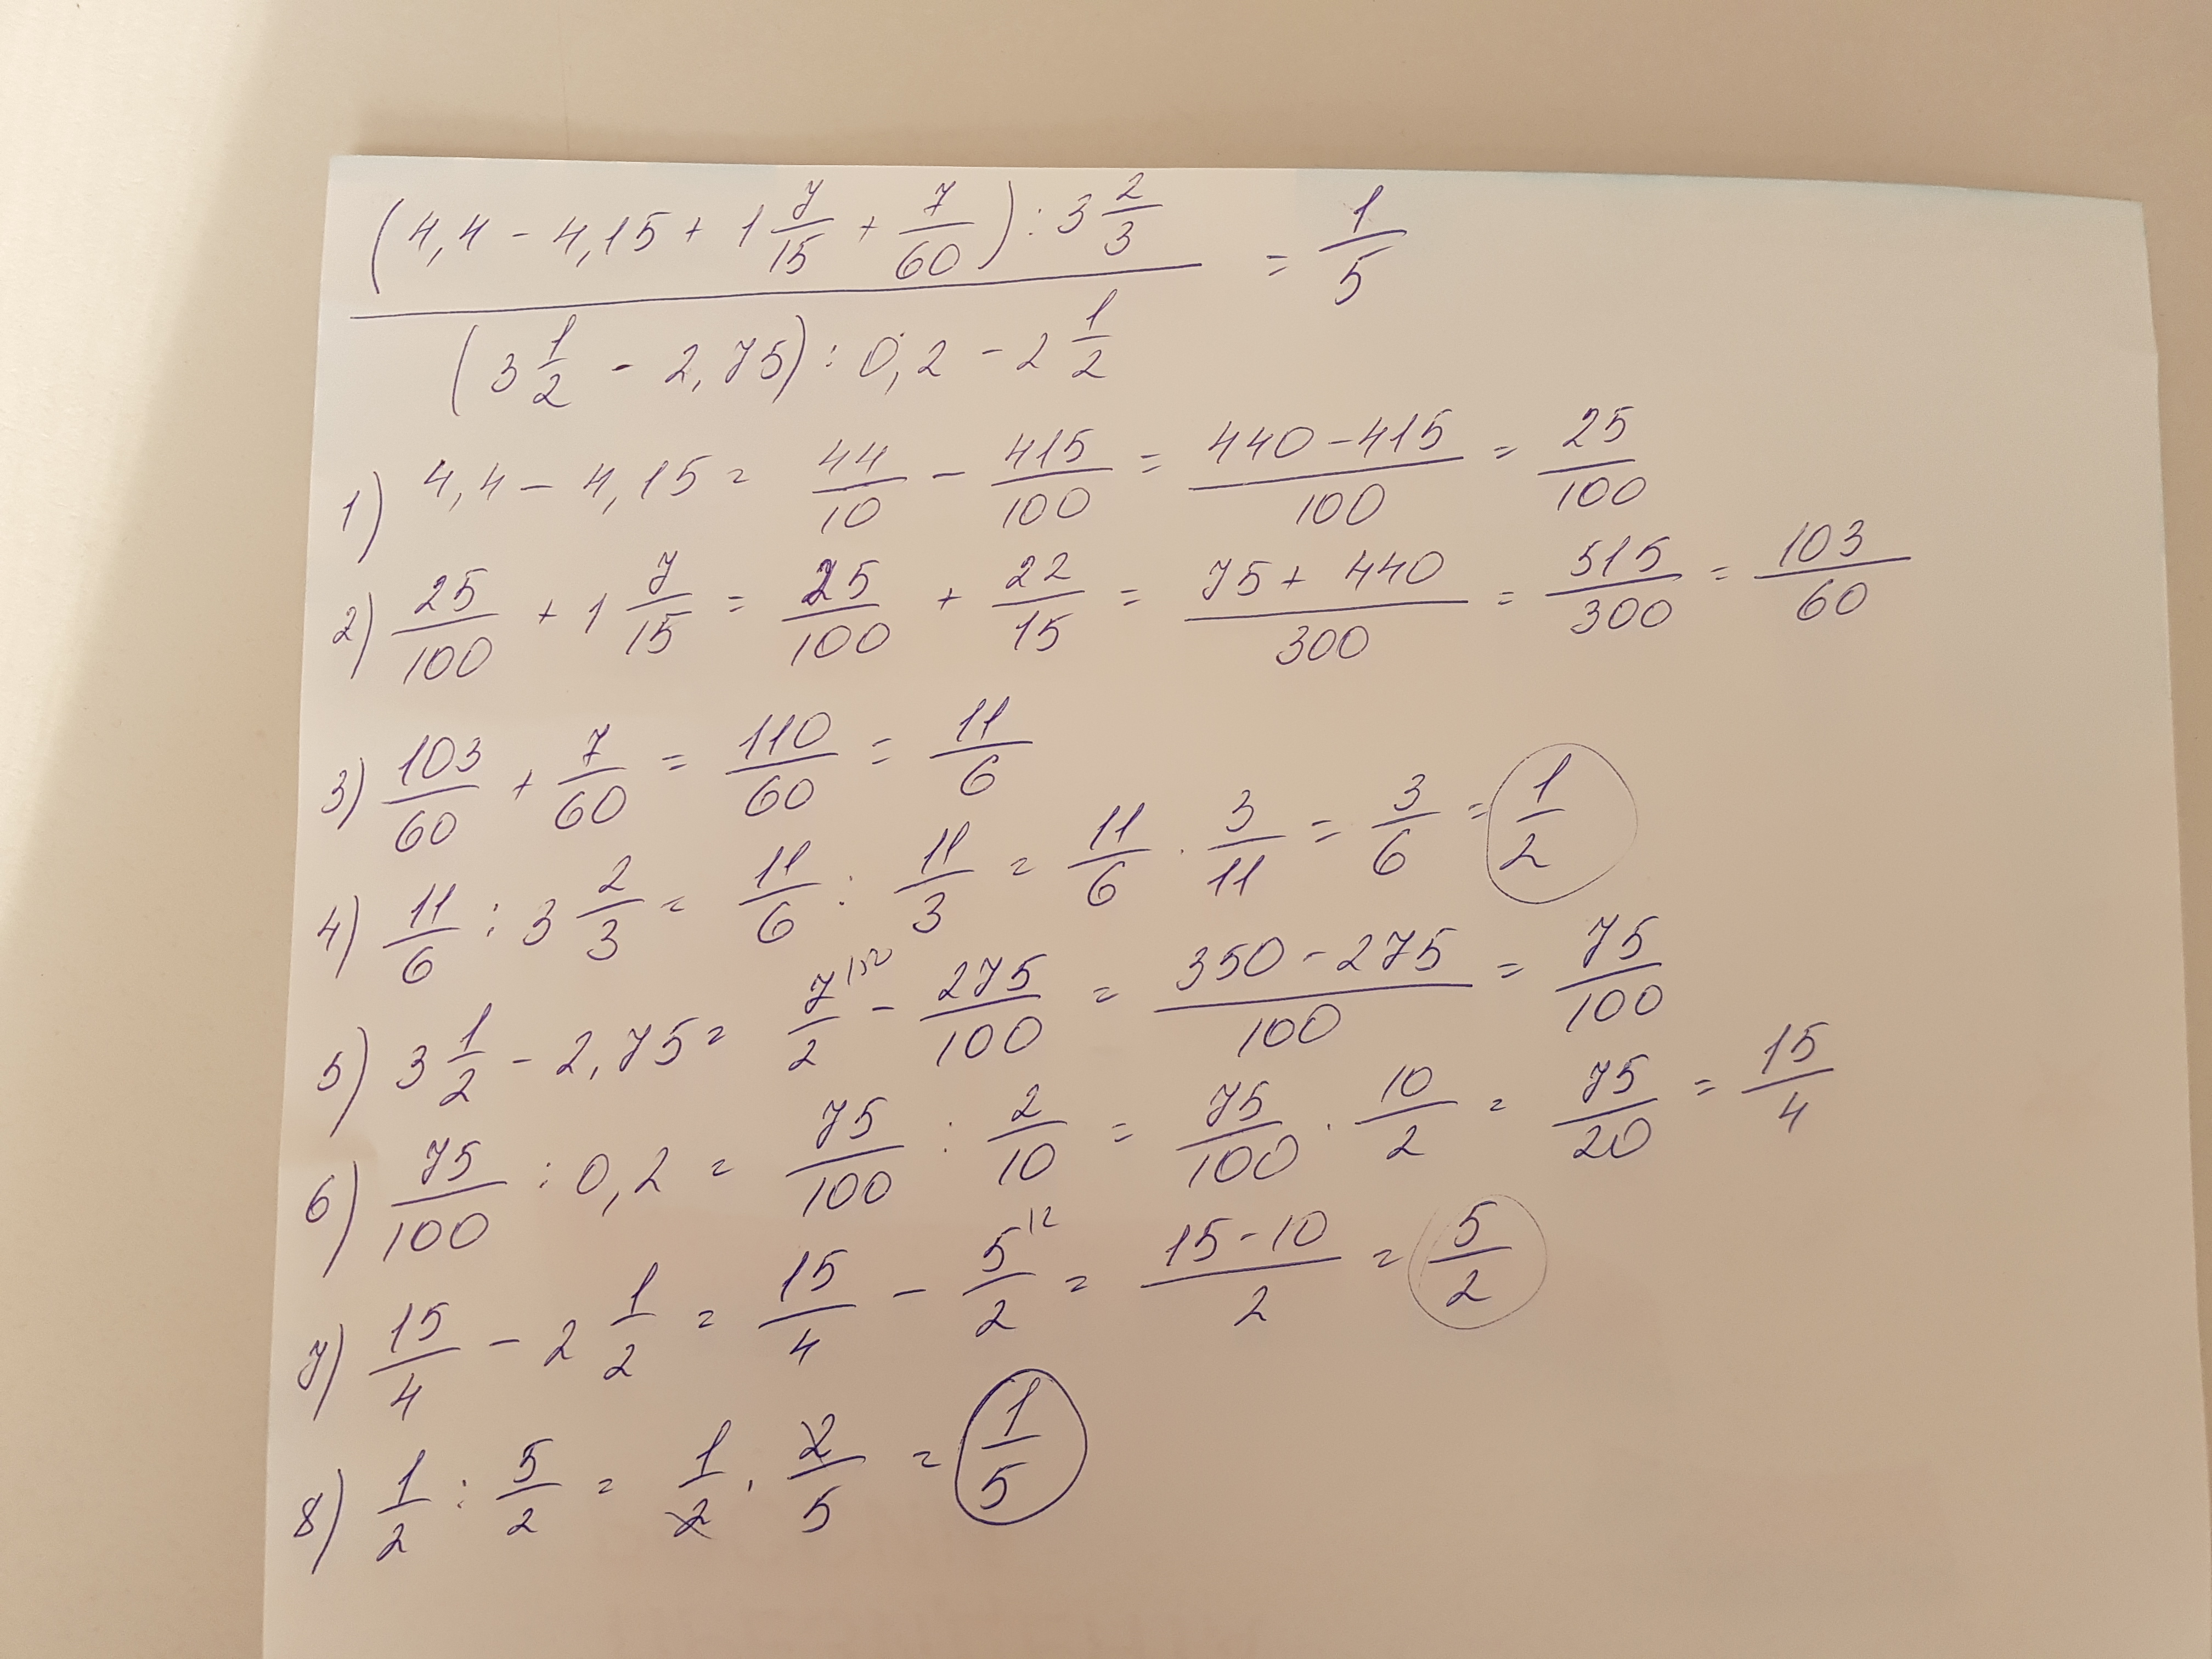 (4,4 - 4,15 + 1 7/15 + 7/60) : 3 2/3 = 1/5
(3 1/2 - 2,75) : 0,2 - 2 1/2
1) 4,4 - 4,15 = 44/10 - 415/100 = 440-415/100 = 25/100
2) 25/100 + 1 7/15 = 25/100 + 22/15 = 75+440/300 = 515/300 = 103/60
3) 103/60 + 7/60 = 110/60 = 11/6
4) 11/6 : 3 2/3 = 11/6 : 11/3 = 11/6 · 3/11 = 3/6 = 1/2
5) 3 1/2 - 2,75 = 7/2 |50 - 275/100 = 350-275/100 = 75/100
6) 75/100 : 0,2 = 75/100 : 2/10 = 75/100 · 10/2 = 75/20 = 15/4
7) 15/4 - 2 1/2 = 15/4 - 5/2 |2 = 15-10/2 = 5/2
8) 1/2 : 5/2 = 1/2 · 2/5 = 1/5